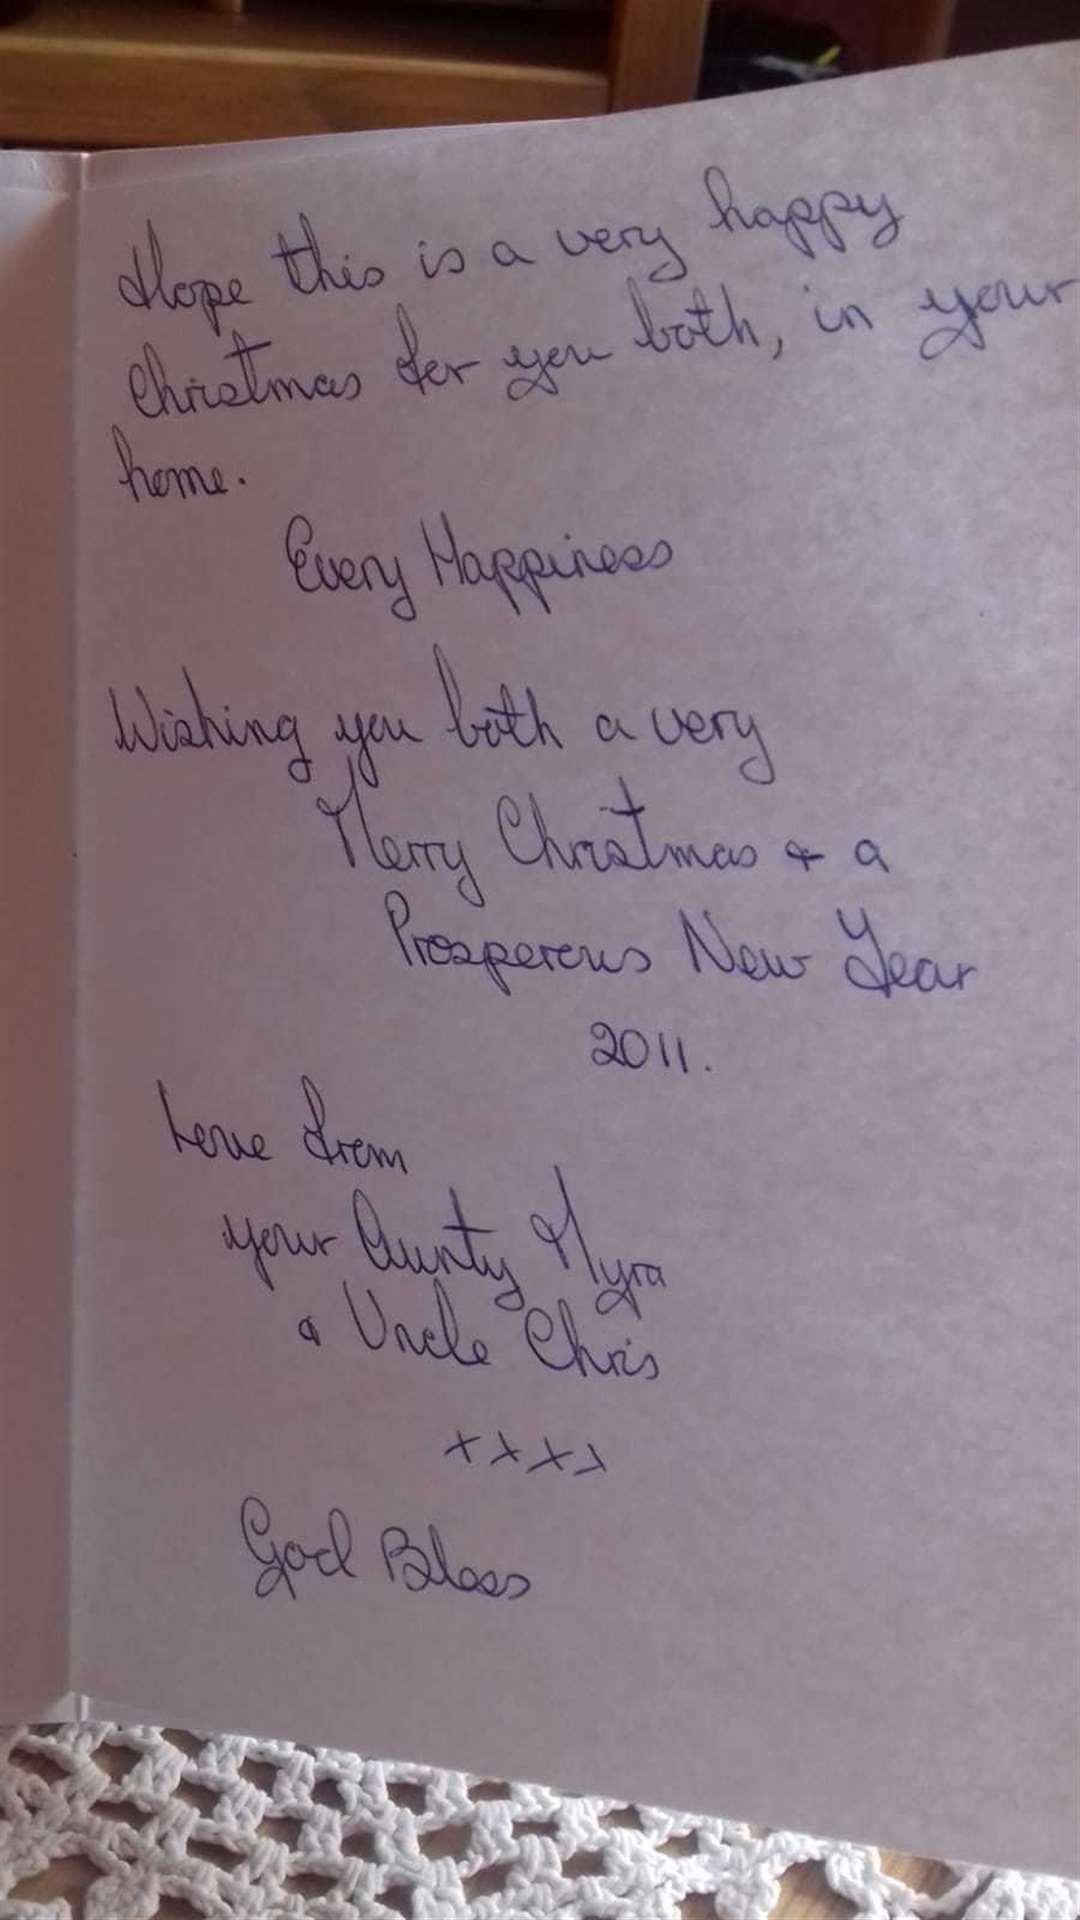 Hope this is a very happy
Christmas for you both, in your
home.
Every Happiness
Wishing you both a very
Merry Christmas & a
Prosperous New Year
2011.
Love from
your Aunty Myra
& Uncle Chris
xxxx
God Bless